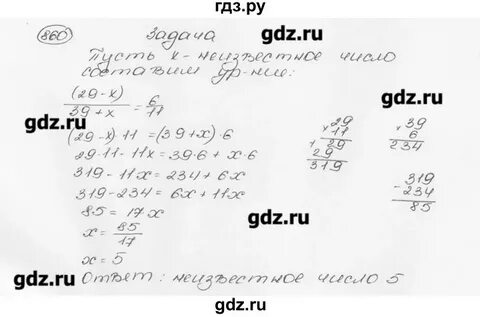 гдз.ру
860 Задача
gdz.ru
Пусть x - неизвестное число
составим ур-ние:
gdz.ru
(29-x)/39+x = 6/11
gdz.ru
gdz.ru
(29-x)·11=(39+x)·6
29·11-11x=39·6+x·6
319-11x=234+6x
319-234=6x+11x
85=17x
x=85/17
x=5
× 29
11
1 29
29
319
× 39
6
234
- 319
234
85
gdz.ru
gdz.ru
gdz.ru
Ответ: неизвестное число 5
gdz.ru
gdz.ru